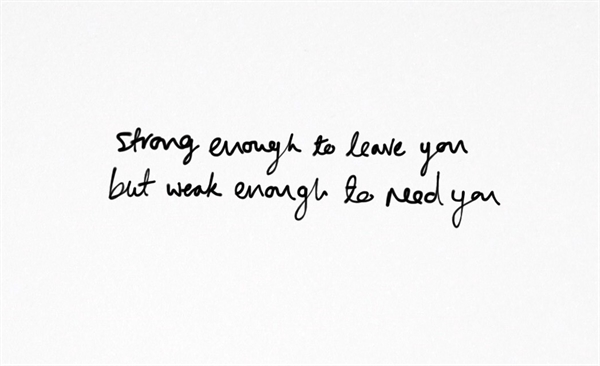 strong enough to leave you
but weak enough to need you